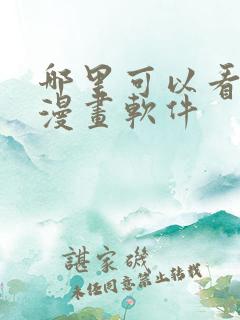 哪里可以看
漫畫軟件
諶家磯
未经同意禁止转载